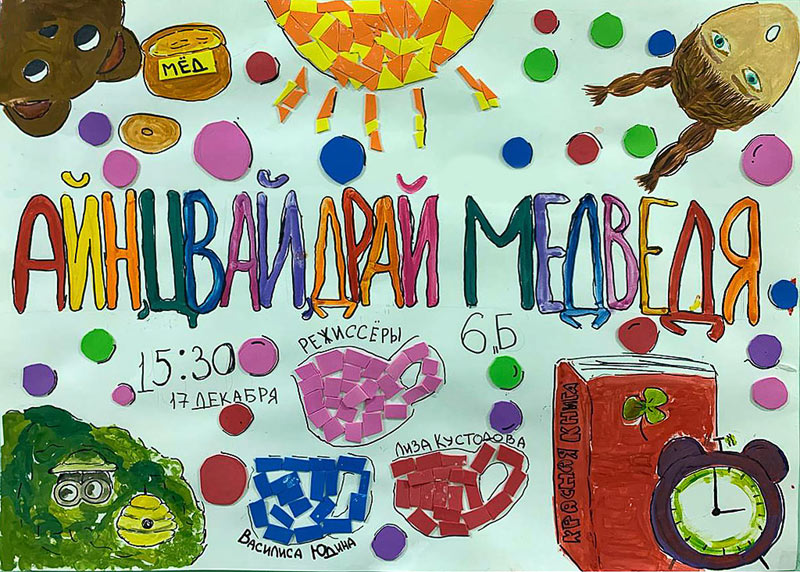 МЁД
АЙН,ЦВАЙ,ДРАЙ МЕДВЕДЯ
РЕЖИССЁРЫ
6„Б
15:30
17 ДЕКАБРЯ
ЛИЗА КУСТОДОВА
ВАСИЛИСА ЮДИНА
КРАСНАЯ КНИГА